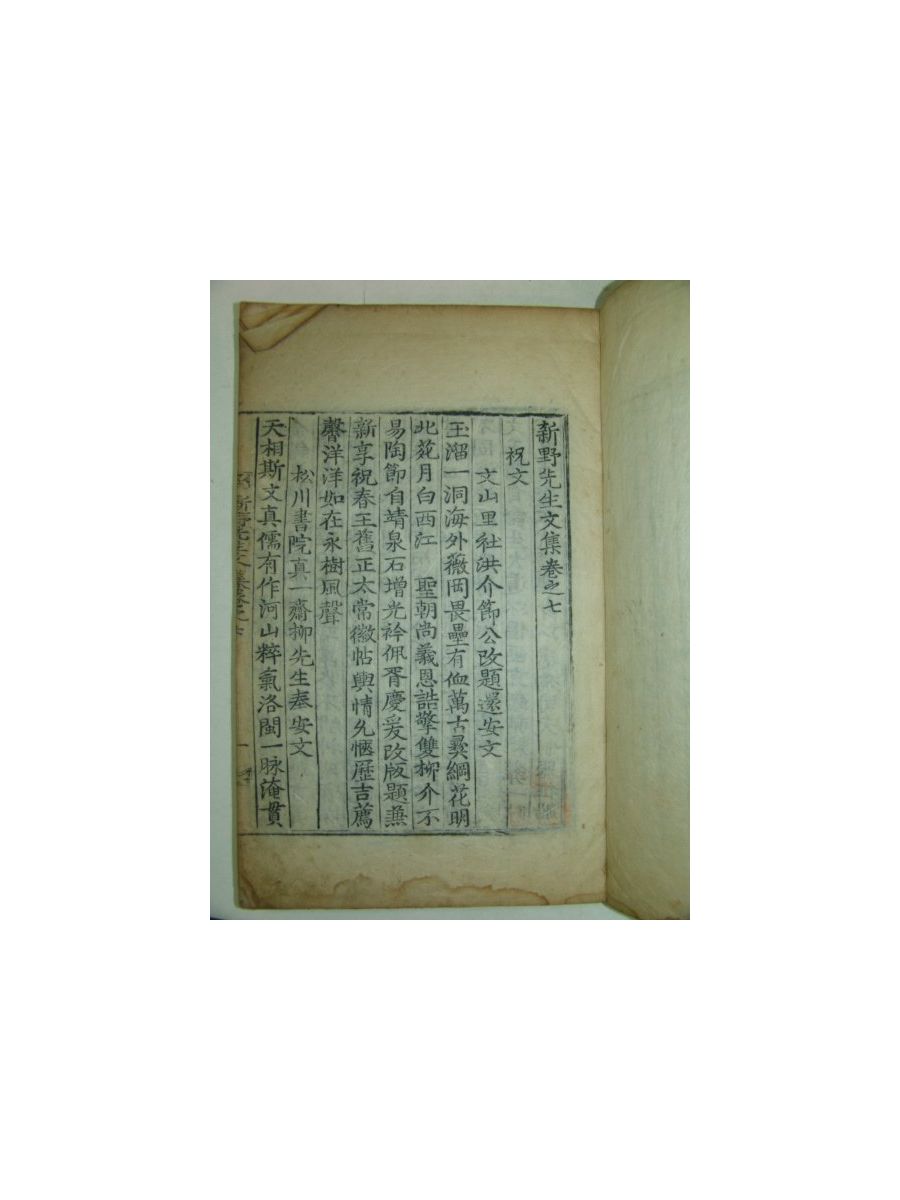 新野先生文集卷之七
祝文
文山里社洪介節公改題還安文
玉溜一洞海外薇岡畏壘有侐萬古彛綱花明
北苑月白西江 聖朝尚義恩誥擎雙柳介不
易陶節自靖泉石增光衿佩胥慶爰改版題燕
新享祝春王舊正太常徽帖輿情允愜歷吉薦
馨洋洋如在永樹風聲
松川書院真一齋柳先生奉安文
天相斯文真儒有作河山粹氣洛閩一脉淹貫
新野先生文集卷之七 一